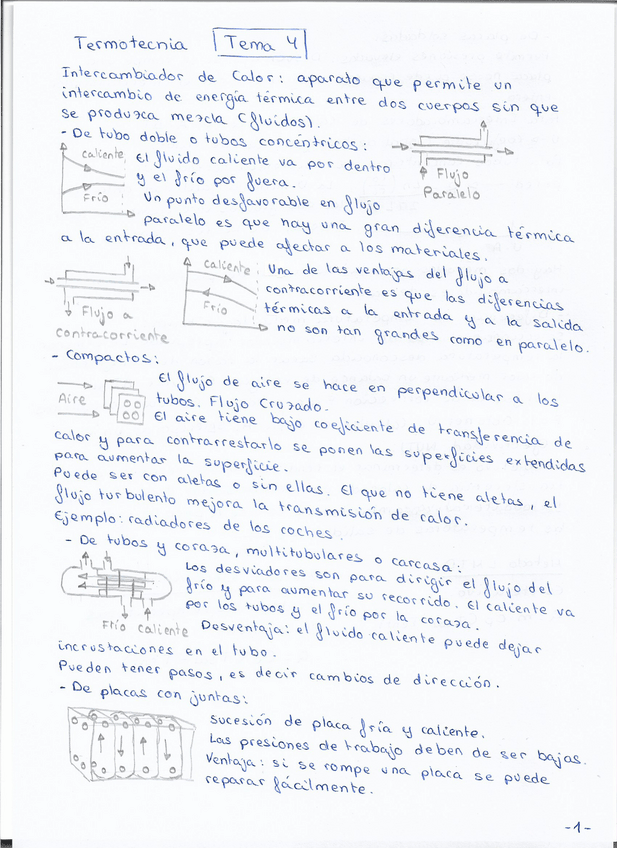 Termotecnia Tema 4
Intercambiador de Calor: aparato que permite un
intercambio de energía térmica entre dos cuerpos sin que
se produzca mezcla (fluidos).
- De tubo doble o tubos concéntricos:
caliente
Frío
El fluido caliente va por dentro
y el frío por fuera.
Flujo
Paralelo
Un punto desfavorable en flujo
paralelo es que hay una gran diferencia térmica
a la entrada, que puede afectar a los materiales.
Flujo a
contracorriente
Caliente
Frío
Una de las ventajas del flujo a
contracorriente es que las diferencias
térmicas a la entrada y a la salida
no son tan grandes como en paralelo.
- Compactos:
Aire
El flujo de aire se hace en perpendicular a los
tubos. Flujo Cruzado.
El aire tiene bajo coeficiente de transferencia de
calor y para contrarrestarlo se ponen las superficies extendidas
para aumentar la superficie.
Puede ser con aletas o sin ellas. El que no tiene aletas, el
flujo turbulento mejora la transmisión de calor.
Ejemplo: radiadores de los coches.
- De tubos y coraza, multitubulares o carcasa:
Los desviadores son para dirigir el flujo del
frío y para aumentar su recorrido. El caliente va
por los tubos y el frío por la coraza.
Frío caliente
Desventaja: el fluido caliente puede dejar
incrustaciones en el tubo.
Pueden tener pasos, es decir cambios de dirección.
- De placas con juntas:
Sucesión de placa fría y caliente.
Las presiones de trabajo deben de ser bajas.
Ventaja: si se rompe una placa se puede
reparar fácilmente.
-1-